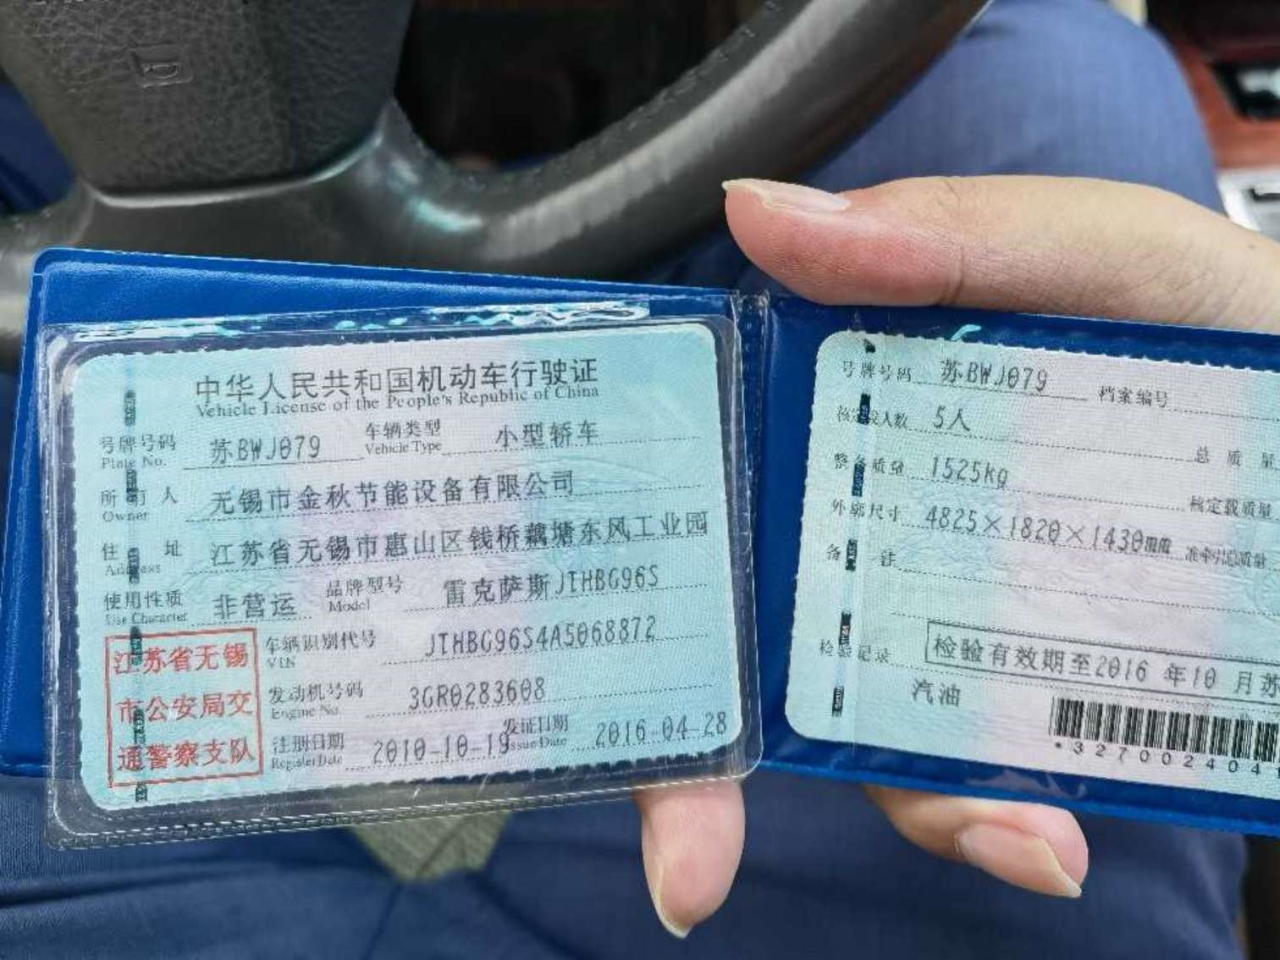 中华人民共和国机动车行驶证
Vehicle License of the People's Republic of China
号牌号码 苏BWJ079 车辆类型 小型轿车
Plate No. Vehicle Type
所有人 无锡市金秋节能设备有限公司
Owner
住址 江苏省无锡市惠山区钱桥藕塘东风工业园
Address
使用性质 非营运 品牌型号 雷克萨斯JTHBG96S
Use Character Model
车辆识别代号 JTHBG96S4A5068872
VIN
发动机号码 3GR0283608
Engine No.
注册日期 2010-10-19 发证日期 2016-04-28
Register Date Issue Date
江苏省无锡
市公安局交
通警察支队
号牌号码 苏BWJ079 档案编号
核定载人数 5人 总质量
整备质量 1525kg 核定载质量
外廓尺寸 4825×1820×1430mm 准牵引总质量
备注
检验记录 检验有效期至2016年10月苏
汽油
*327002404